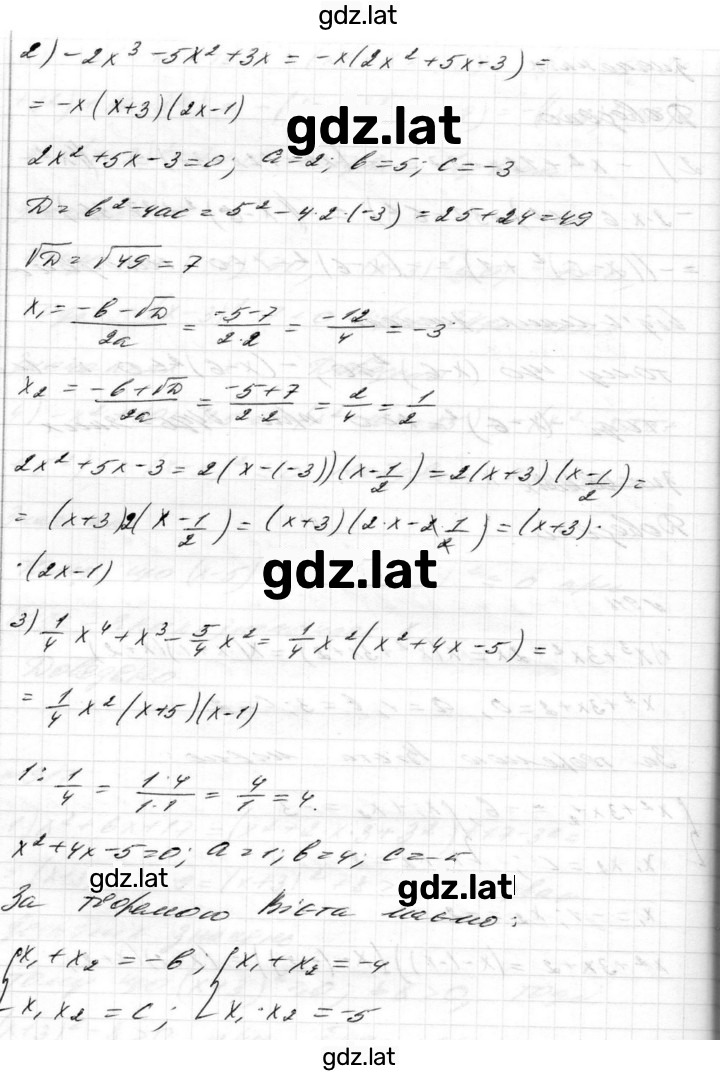 gdz.lat
2) -2x³ - 5x² + 3x = -x(2x² + 5x - 3) =
= -x(x+3)(2x-1)
gdz.lat
2x² + 5x - 3 = 0; a = 2; b = 5; c = -3
D = b² - 4ac = 5² - 4·2·(-3) = 25 + 24 = 49
√D = √49 = 7
x₁ = (-b - √D)/(2a) = (-5 - 7)/(2·2) = -12/4 = -3
x₂ = (-b + √D)/(2a) = (-5 + 7)/(2·2) = 2/4 = 1/2
2x² + 5x - 3 = 2(x - (-3))(x - 1/2) = 2(x+3)(x - 1/2) =
= (x+3)2(x - 1/2) = (x+3)(2·x - 2·1/2) = (x+3)·
·(2x-1)
gdz.lat
3) 1/4 x⁴ + x³ - 5/4 x² = 1/4 x²(x² + 4x - 5) =
= 1/4 x²(x+5)(x-1)
1 : 1/4 = (1·4)/(1·1) = 4/1 = 4.
x² + 4x - 5 = 0; a = 1; b = 4; c = -5
gdz.lat
gdz.lat
За теоремою Вієта маємо:
{x₁ + x₂ = -b; {x₁ + x₂ = -4
{x₁ x₂ = c; {x₁ · x₂ = -5
gdz.lat